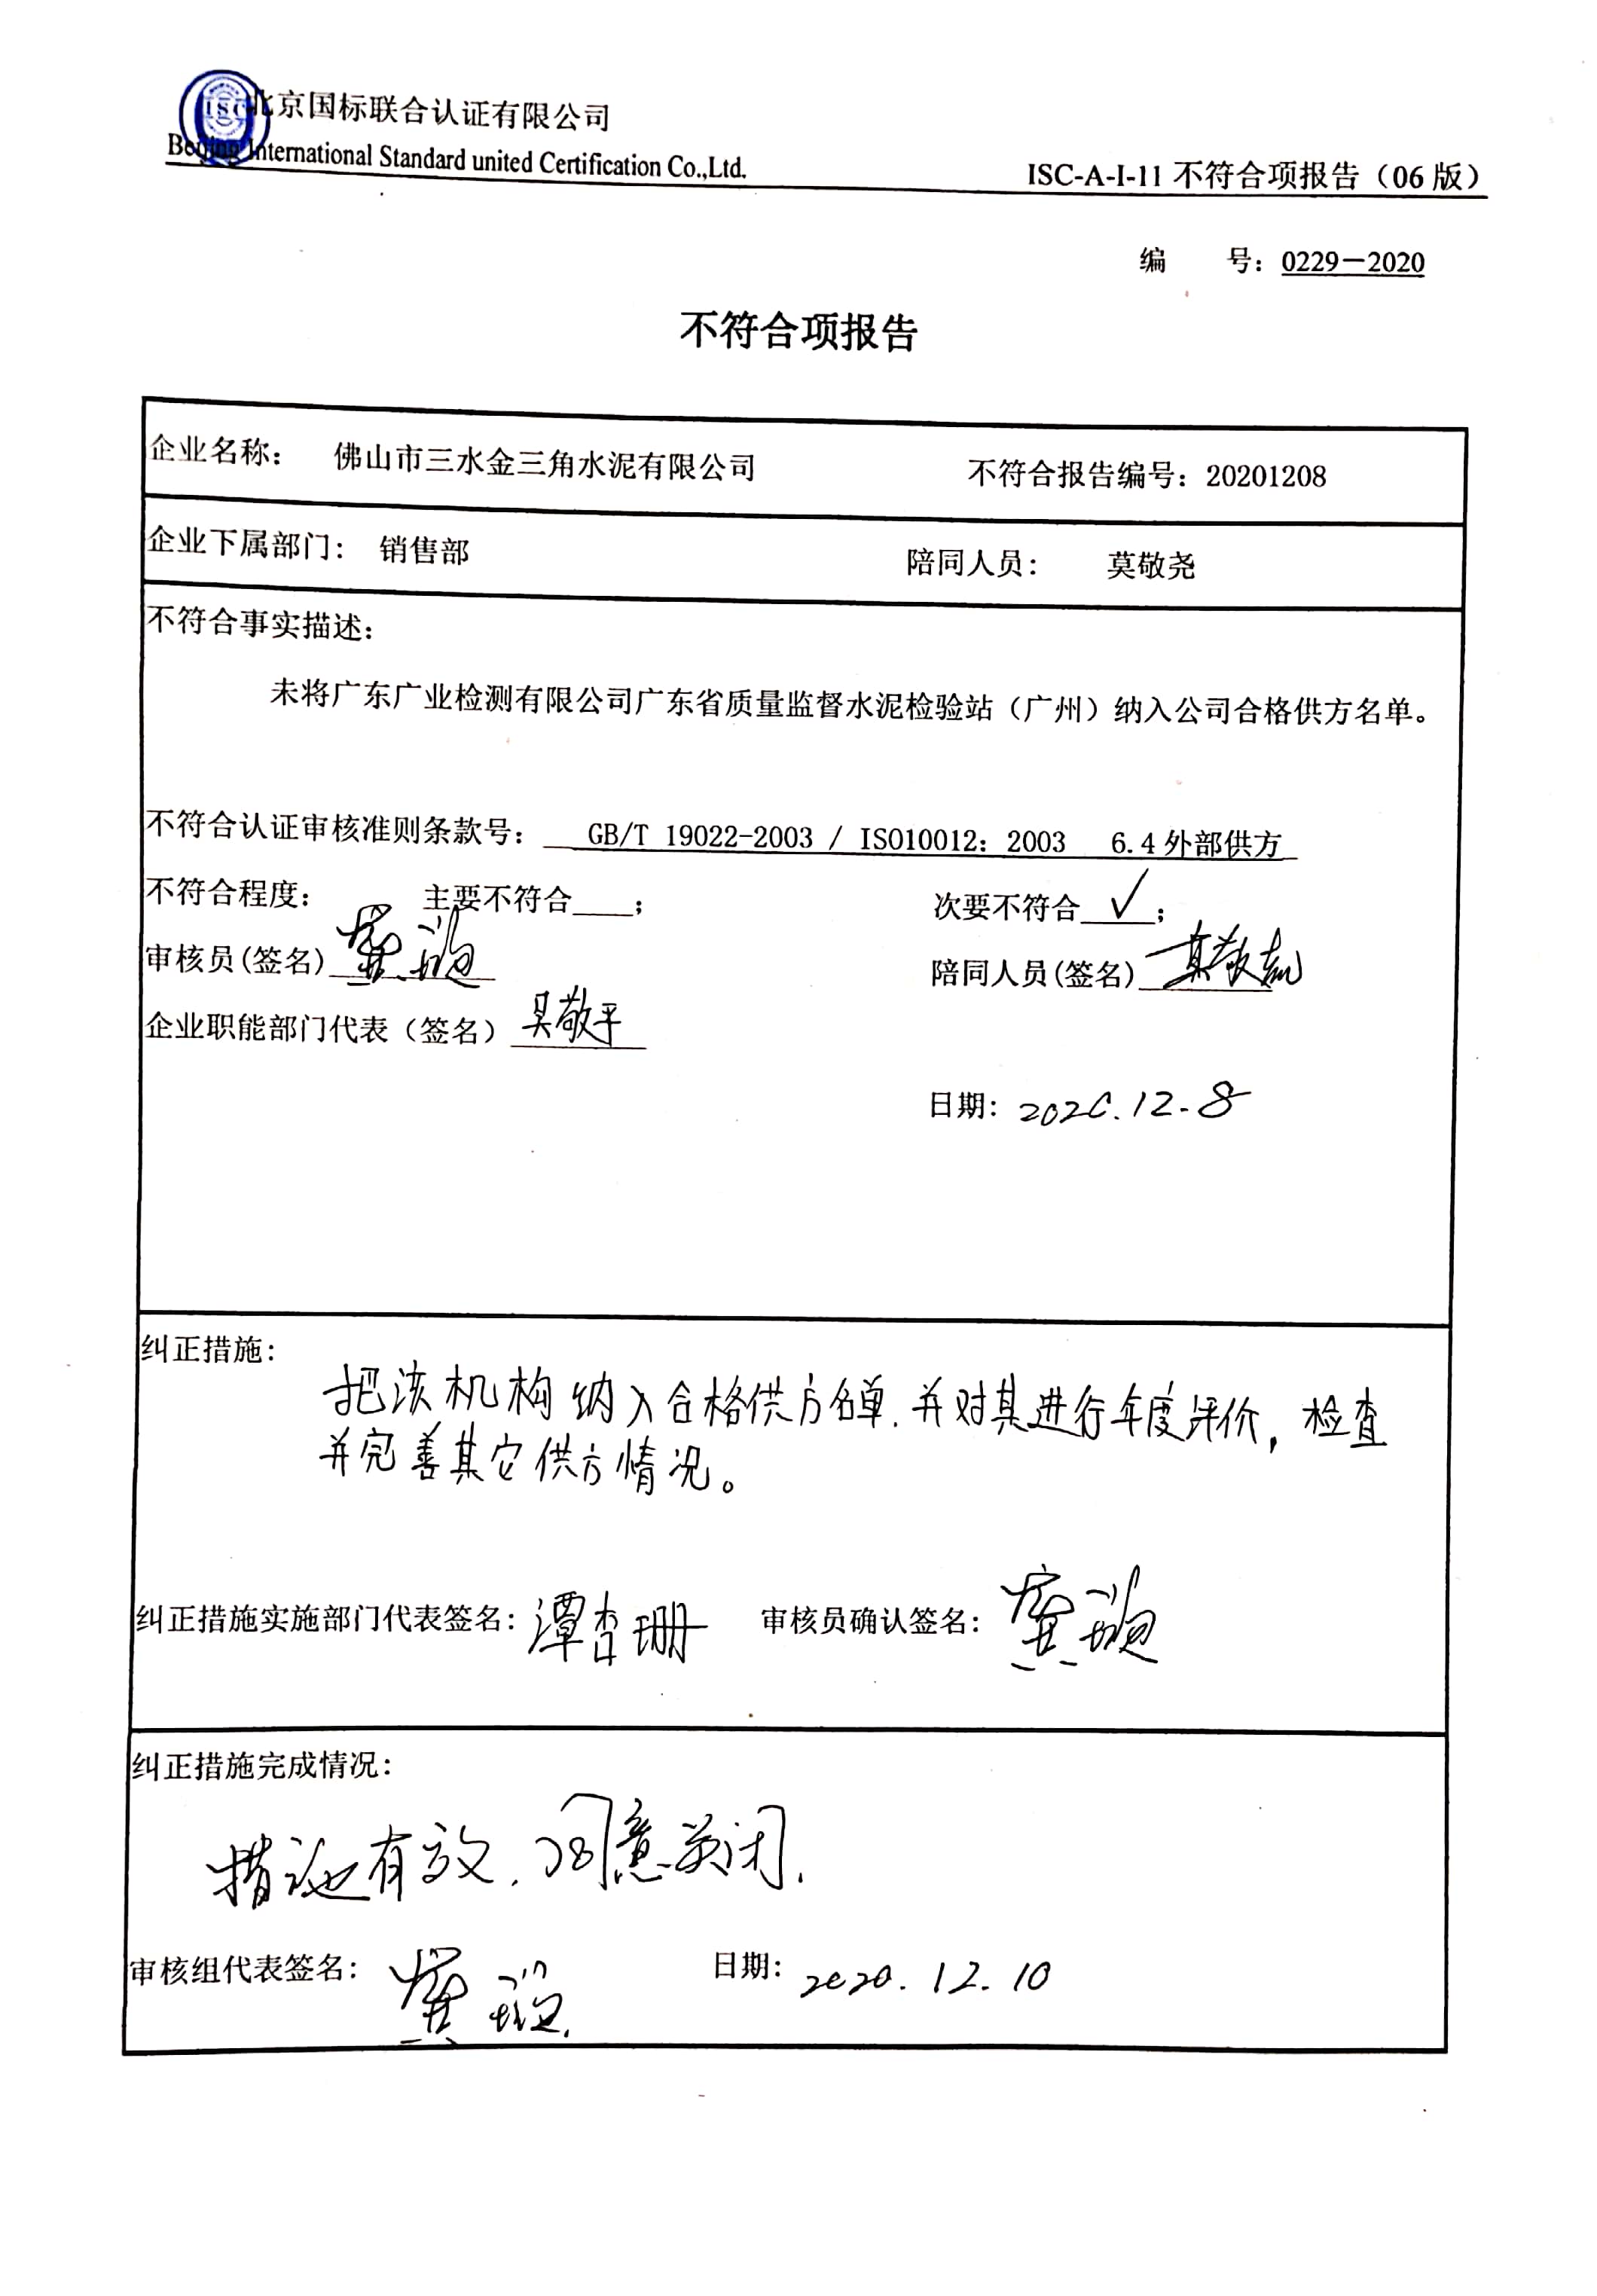 ISC
北京国标联合认证有限公司
Beijing International Standard united Certification Co.,Ltd.
ISC-A-I-11 不符合项报告（06 版）
编 号：0229－2020
不符合项报告
企业名称： 佛山市三水金三角水泥有限公司 不符合报告编号：20201208
企业下属部门： 销售部 陪同人员： 莫敬尧
不符合事实描述：
未将广东广业检测有限公司广东省质量监督水泥检验站（广州）纳入公司合格供方名单。
不符合认证审核准则条款号： GB/T 19022-2003 / ISO10012：2003 6.4 外部供方
不符合程度： 主要不符合 ； 次要不符合 √ ；
审核员(签名) 陪同人员(签名) 莫敬尧
企业职能部门代表（签名）
日期：2020.12.8
纠正措施：
把该机构纳入合格供方名单，并对其进行年度评价，检查
并完善其它供方情况。
纠正措施实施部门代表签名：谭杏珊 审核员确认签名：
纠正措施完成情况：
措施有效，同意关闭.
审核组代表签名： 日期：2020.12.10